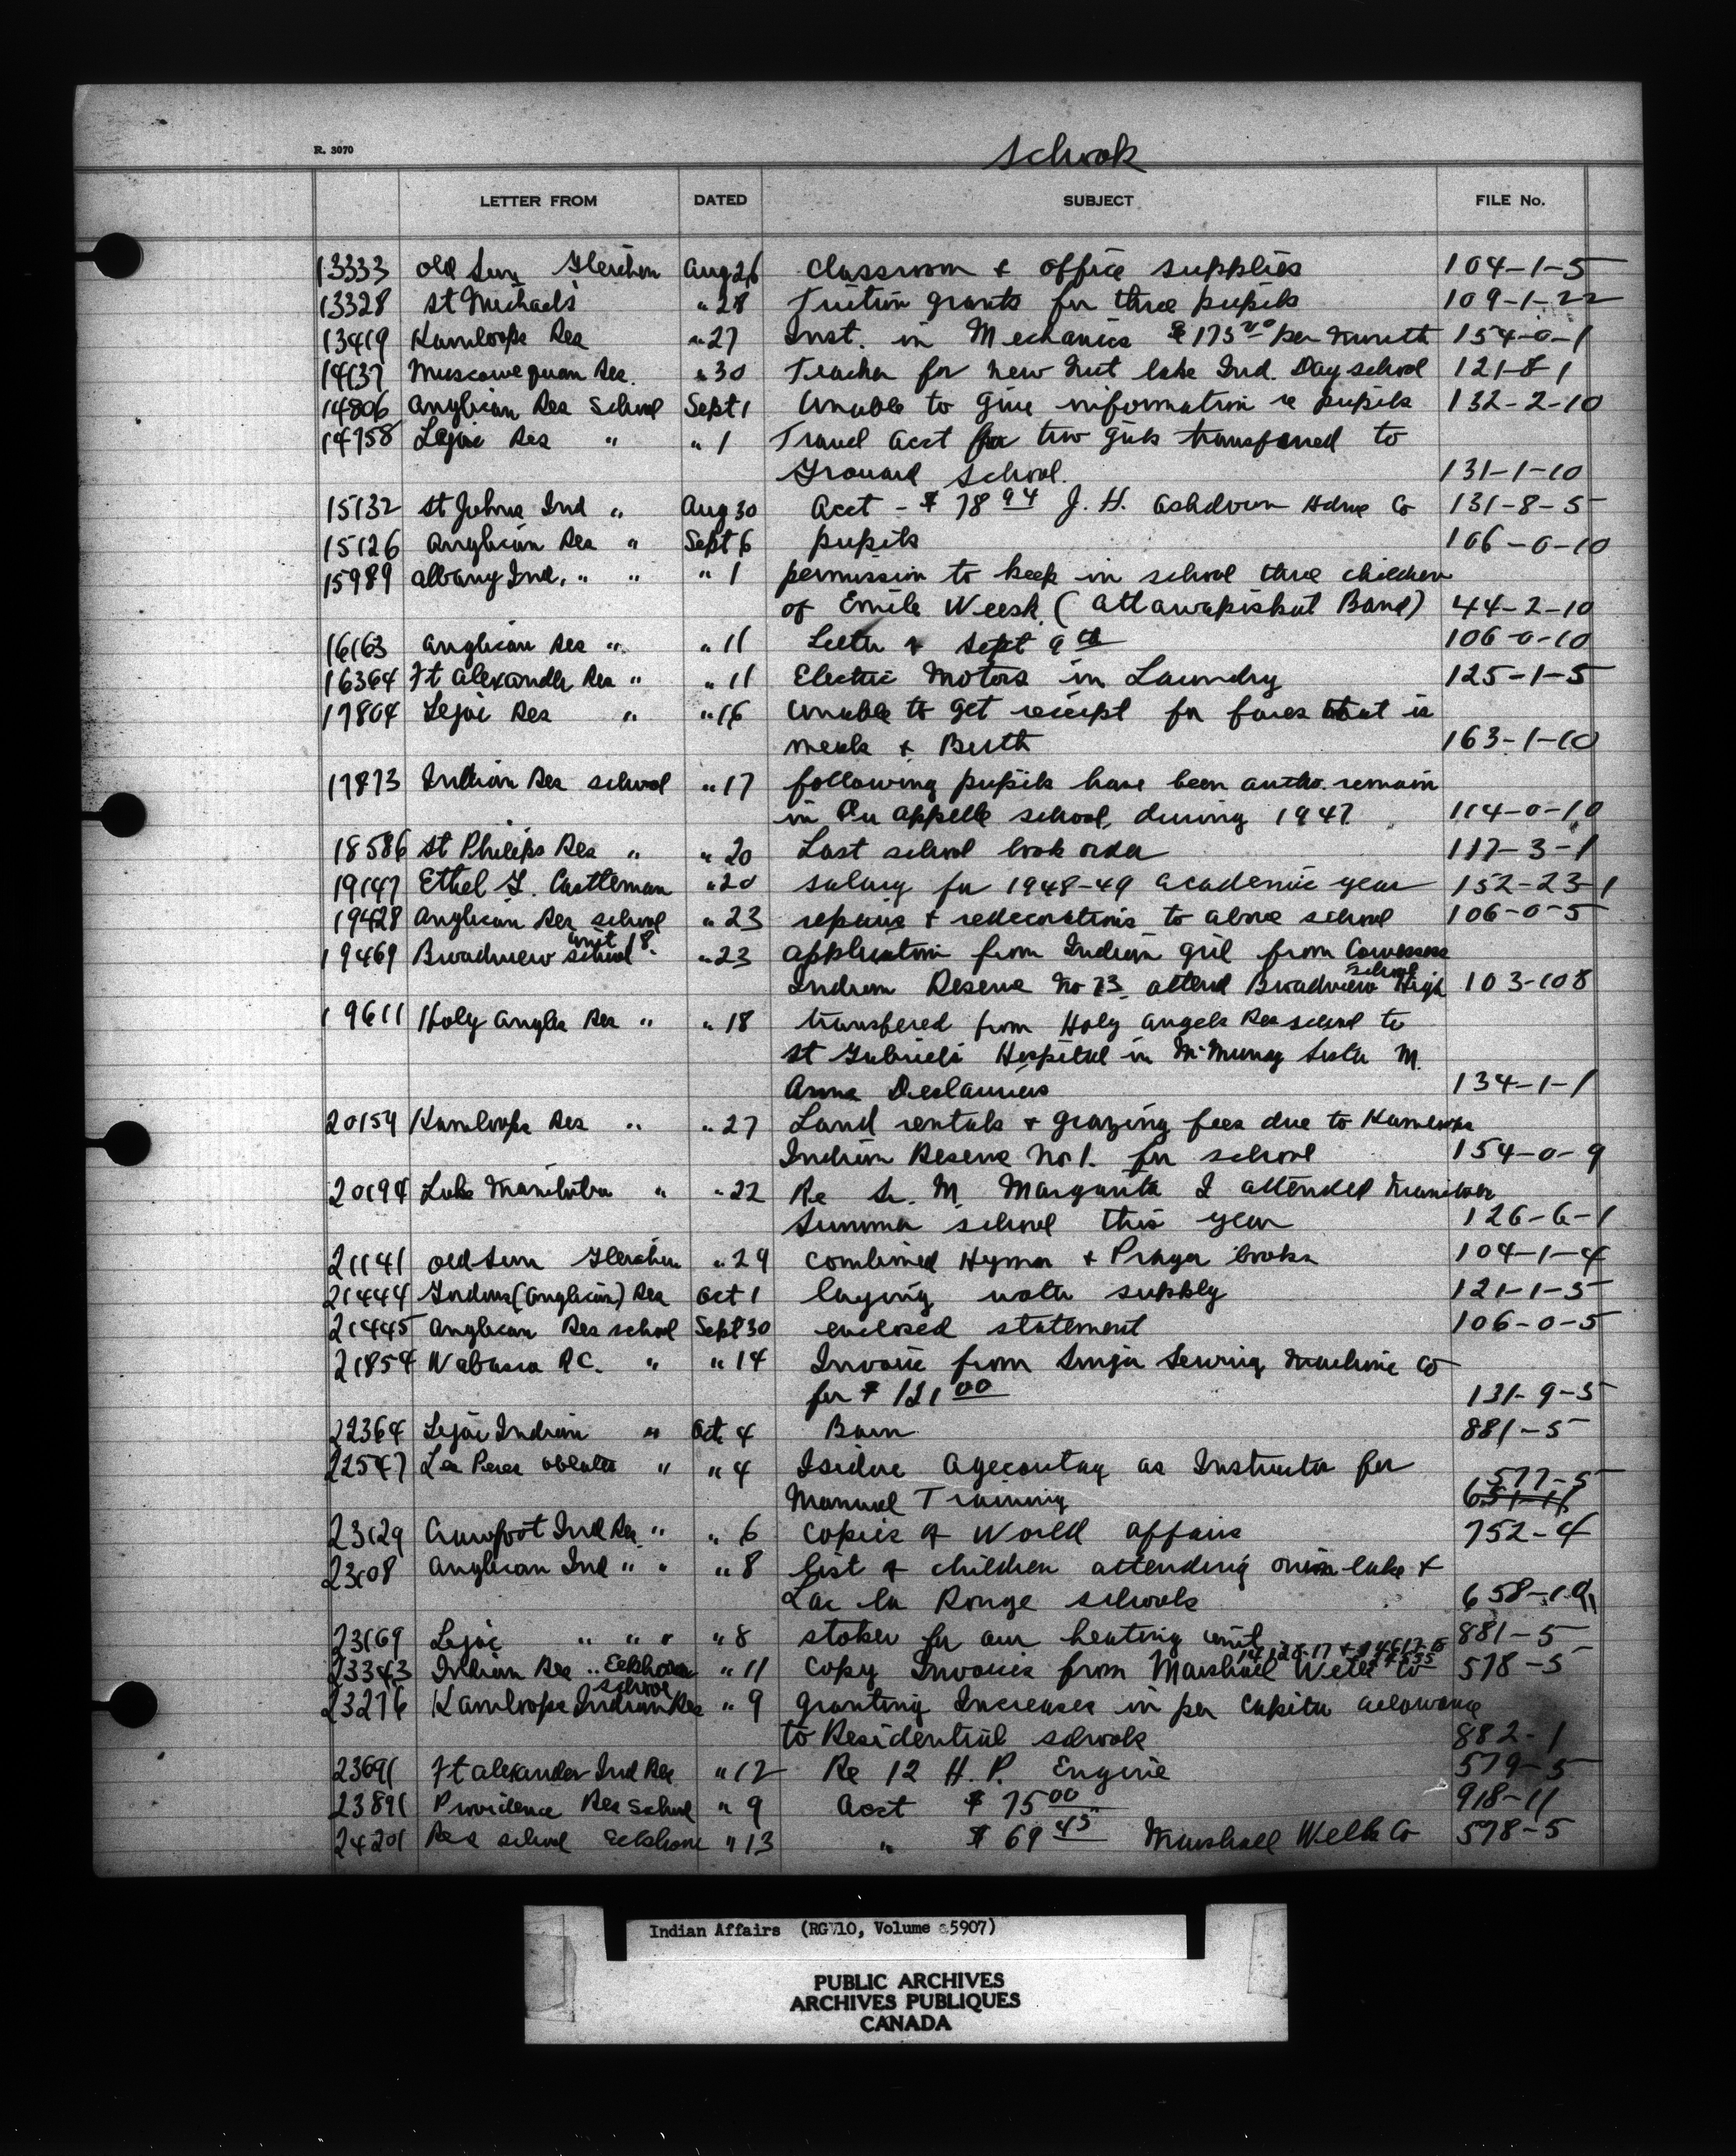 R. 3070
Schools
LETTER FROM DATED SUBJECT FILE No.
13333 Old Sun Gleichen Aug 26 Classroom & office supplies 104-1-5
13328 St Michaels " 28 Tuition grants for three pupils 109-1-22
13419 Kamloops Res " 27 Inst. in Mechanics $175 00 per month 154-0-1
14137 Muscowequan Res. " 30 Teacher for new Nut lake Ind. Day school 121-8-1
14806 Anglican Res School Sept 1 Unable to give information re pupils 132-2-10
14758 Lejac Res " " 1 Travel acct for two girls transferred to
Grouard School. 131-1-10
15132 St Johns Ind " Aug 30 Acct - $ 78 94 J. H. Ashdown Hdwe Co 131-8-5
15126 Anglican Res " Sept 6 pupils 106-0-10
15989 Albany Ind. " " " 1 permission to keep in school three children
of Emile Weesk (Attawapiskat Band) 44-2-10
16163 Anglican Res " " 11 Letter of Sept 9 th 106-0-10
16364 Ft Alexander Res " " 11 Electric Motors in Laundry 125-1-5
17804 Lejac Res " " 16 Unable to get receipt for fares that is
meals & Berth 163-1-10
17873 Indian Res school " 17 following pupils have been autho. remain
in Qu Appelle school, during 1947 114-0-10
18586 St Philips Res " " 20 Last school book order 117-3-1
19147 Ethel G. Castleman " 20 salary for 1948-49 academic year 152-23-1
19428 Anglican Res school " 23 repairs & redecorations to above school 106-0-5
19469 Broadview school unit 18. " 23 application from Indian girl from Cowessess
Indian Reserve No 73. attend Broadview High school 103-108
19611 Holy Angles Res " " 18 transfered from Holy Angels Res school to
St Gabriels Hospital in McMurray Sister M.
Anna Deslauriers 134-1-1
20159 Kamloops Res " " 27 Land rentals & grazing fees due to Kamloops
Indian Reserve No 1. for school 154-0-9
20194 Lake Manitoba " " 22 Re Sr. M. Margarita I attended Manitoba
Summer school this year 126-6-1
21141 Old Sun Gleichen " 29 Combined Hymn & Prayer books 104-1-4
21444 Gordons (Anglican) Res Oct 1 laying water supply 121-1-5
21445 Anglican Res school Sept 30 enclosed statement 106-0-5
21854 Wabasca R.C. " " 14 Invoice from Singer Sewing Machine Co
for $ 121 00 131-9-5
22364 Lejac Indian " Oct 4 Barn 881-5
22547 Les Peres Oblats " " 4 Isidore Agecoutay as Instructor for
Manual Training 577-5
23129 Crowfoot Ind Res " " 6 Copies of World Affairs 752-4
23108 Anglican Ind " " " 8 list of children attending onion lake &
Lac la Ronge schools 658-10
23169 Lejac " " " " 8 stoker for our heating unit 881-5
23343 Indian Res " Elkhorn " 11 Copy Invoices from Marshall Wells Co 578-5
23276 Kamloops Indian Res school " 9 granting Increases in per Capita allowance
to Residential schools 882-1
23691 Ft Alexander Ind Res " 12 Re 12 H. P. Engine 579-5
23891 Providence Res School " 9 Acct $ 75 00 918-11
24201 Res school Elkhorn " 13 " $ 69 45 Marshall Wells Co 578-5
Indian Affairs (RG 10, Volume 5907)
PUBLIC ARCHIVES
ARCHIVES PUBLIQUES
CANADA